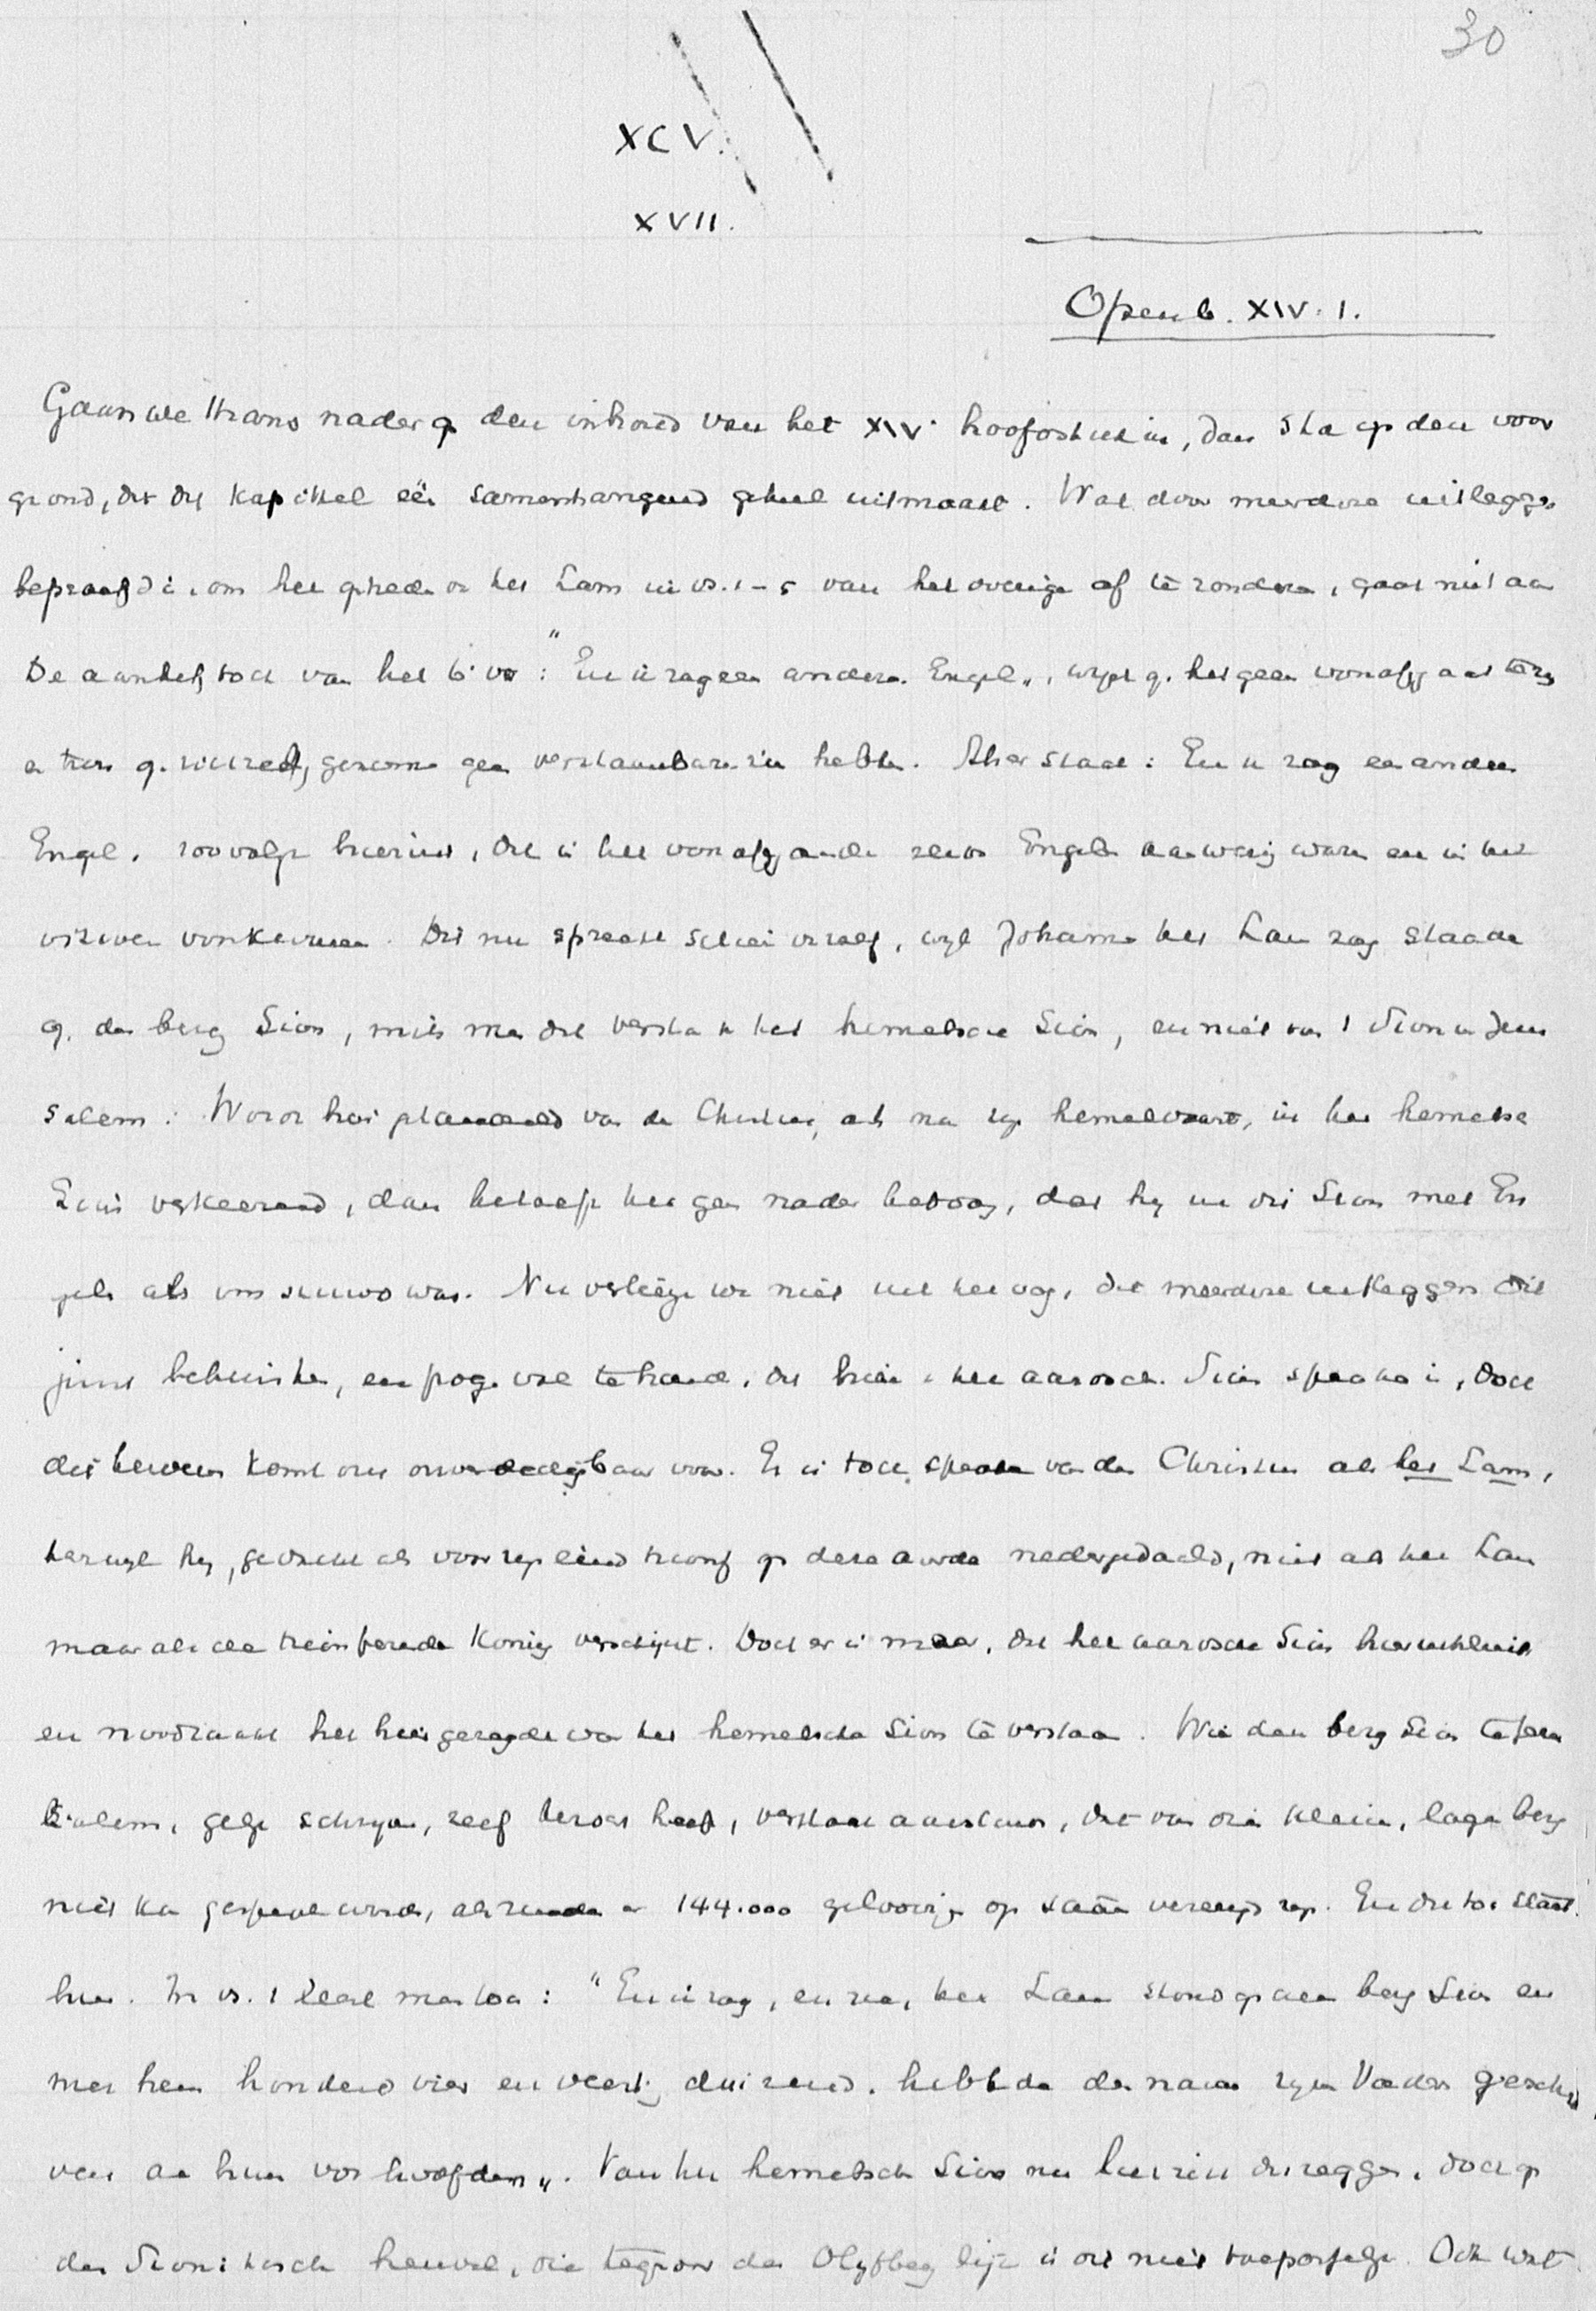 30
XCV.
XVII.
Openb. XIV. 1.
Gaan we thans nader op den inhoud van het XIVe hoofdstuk in, dan sta op den voor
grond, dat dit kapittel één samenhangend geheel uitmaakt. Wat door meerdere uitleggers
beproefd is, om het optreden van het Lam in vs. 1–5 van het overige af te zonderen, gaat niet aan
De aanhef toch van het 6e vs: "En ik zag een anderen Engel", wijst op hetgeen voorafgaat terug
en kan op zichzelf, genomen geen verstaanbaren zin hebben. Als er staat: En ik zag een anderen
Engel, zoo volgt hieruit, dat in het voorafgaande reeds Engelen aanwezig waren en in het
visioen voorkwamen. Dit nu spreekt schier vanzelf, wijl Johannes het Lam zag staande
op den berg Sion, mits men dit versta van het hemelsche Sion, en niet van 't Sion in Jeru
salem. Wordt hier gehandeld van den Christus, als na zijn hemelvaart, in het hemelsche
Sion verkeerend, dan behoeft het geen nader betoog, dat hij in dit Sion met En
gelen als omstuwd was. Nu verliezen we niet uit het oog, dat meerdere uitleggers dit
juist betwisten, en pogen vol te houden, dat hier van het aardsche Sion sprake is, doch
dit beweren komt ons onverdedigbaar voor. Er is toch sprake van den Christus als het Lam,
terwijl hij, gedacht als voor zijn eindtriomf op deze aarde nedergedaald, niet als het Lam
maar als de triomfeerende Koning verschijnt. Doch er is meer, dat het aardsche Sion hier uitsluit
en noodzaakt het hier gezegde van het hemelsche Sion te verstaan. Wie den berg Sion te Jeru
salem, gelijk schrijver, zelf bezocht heeft, verstaat aanstonds, dat van dien kleinen, lagen berg
niet kan gesproken worden, als zouden er 144.000 geloovigen op staan vereenigd zijn. En dit toch staat
hier. In vs. 1 leest men toch: "En ik zag, en zie, het Lam stond op den berg Sion en
met hem honderd vier en veertig duizend, hebbende den naam zijns Vaders geschre
ven aan hun voorhoofden". Van het hemelsch Sion nu laat zich dit zeggen, doch op
den Sionitischen heuvel, die tegenover den Olijfberg lijt is dit niet toepasselijk. Ook wat